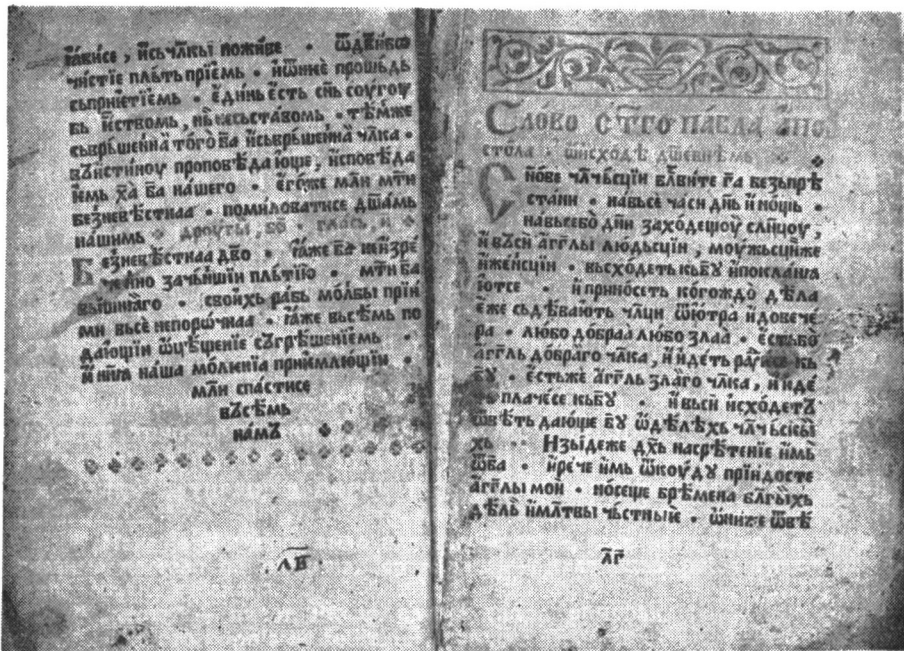 ꙗвисе , исьчл҃кы поживе · ѿдв҃ибⷪ
чистїе пльть прїемь · иѡние прошьдь
сьприетїемь · единь есть сн҃ь соугоу
бь иствомь, нь несьставомь · тѣмже
сьврьшенна того б҃а исьврьшенна чл҃ка ·
вьистиноу проповѣдающе, исповѣда
ємь х҃а б҃а нашего · егоже мл҃и мт҃и
безневѣстнаа · помиловатисе дш҃амь
нашимь · дроугы, бо · глась, и ·
Безневѣстнаа дв҃о · ꙗже б҃а неизре
ченно зачьншїи пльтїю · мт҃и б҃а
вышнꙗго · своихь рабь молбы прїи
ми вьсе непорочнаа · ꙗже вьсѣмь по
дающїи ѡцѣщенїе сьгрѣшенїемь ·
и нн҃ꙗ наша моленїа прїемлющїи ·
мл҃и спастисе
вьсѣмь
намь
л҃в
Слово с҃тго павла апо
стола · ѡисходѣ дш҃евнѣмь
Сн҃ове чл҃чьсцїи бл҃вите г҃а безьпрѣ
стани · навьсе часи дн҃ь и нощь ·
навьсебо дн҃и заходещоу сл҃нцоу,
и вьси агг҃лы людьсцїи , моужьсциже
иженьсцїи · вьсходеть кьб҃у ипоклана
ютсе · и приносеть когождо дѣла
еже сьдѣвають чл҃ци ѿютра идовече
ра · любо добраа любо злаа · естьбо
агг҃ль добраго чл҃ка, и идеть радуесе кь
б҃у · естьже агг҃ль злаго чл҃ка , и иде
ть плачесе кьб҃у · и вьси исходеть
ѿвѣть дающе б҃у ѿдѣлѣхь чл҃чьскы
хь · Изьидеже дх҃ь насрѣтенїе имь
ѿб҃а · и рече имь ѿкоуду прїидосте
агг҃лы мои · носеще брѣмена бл҃гыхь
дѣль имл҃твы чьстныїе · ѡниже ѿвѣ
л҃г